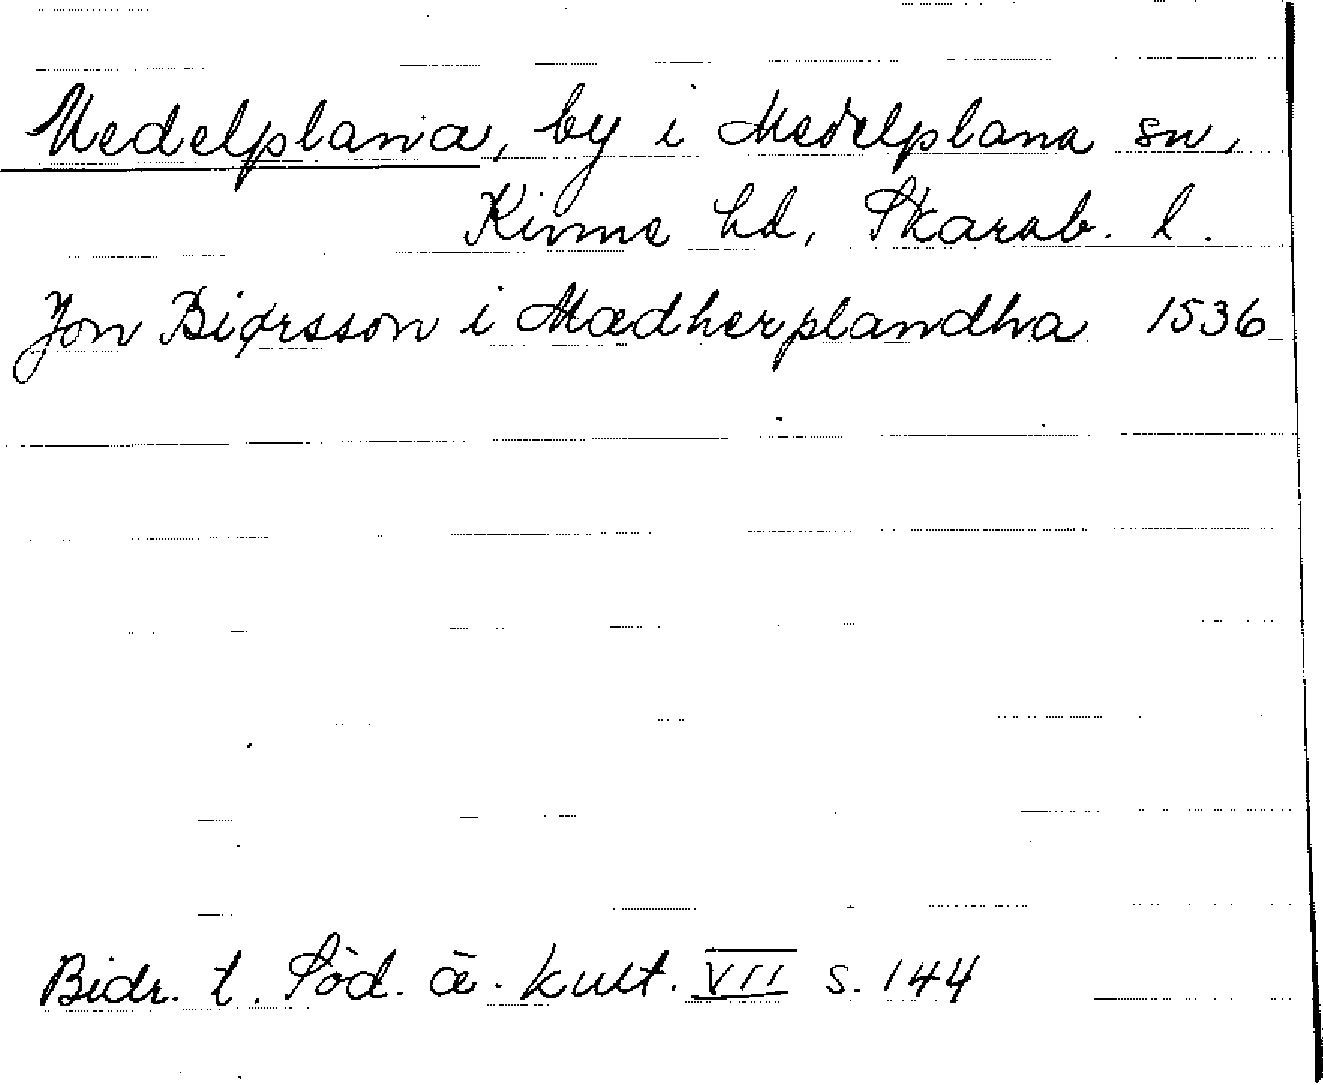 Medelplana, by i Medelplana sn,
Kinne hd, Skarab. l.
Jon Biørsson i Mædherplandha 1536
Bidr. t. Söd. ä. kult. VII s. 144